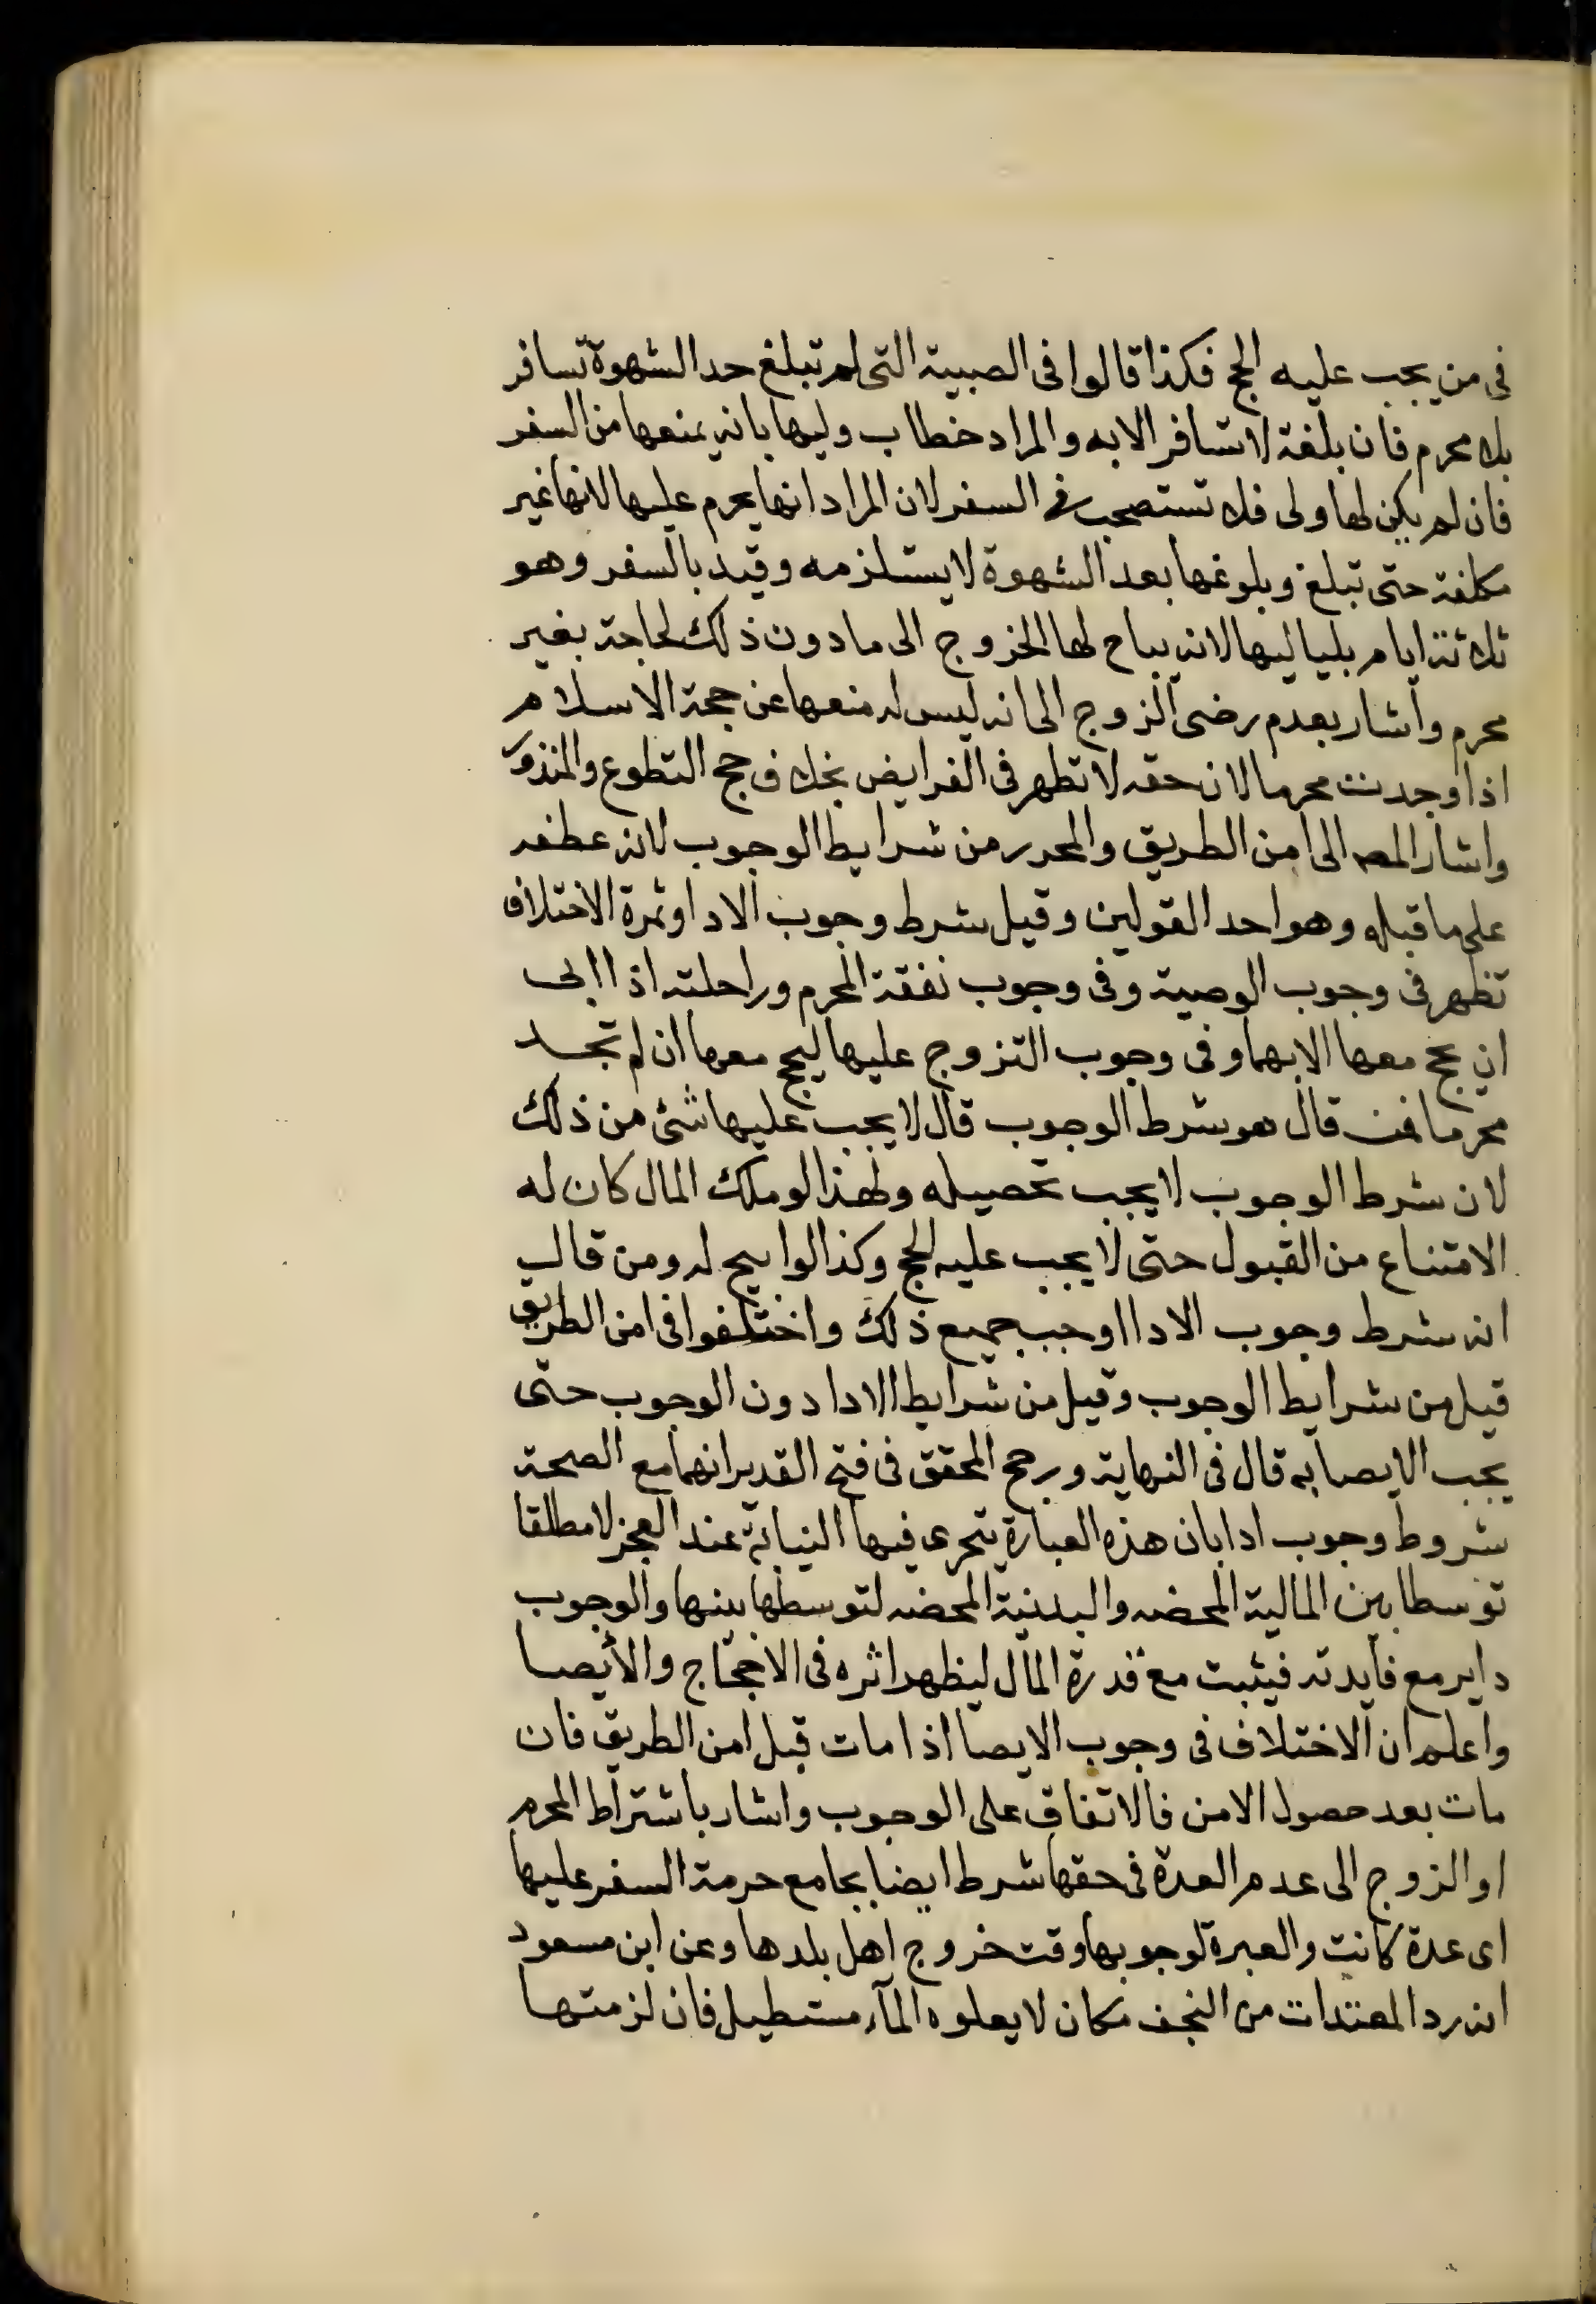 فى من يجب عليه الحج فكذا قالوا فى الصبية التى لم تبلغ حد الشهوة تسافر
بلا محرم فان بلغة لا تسافر الا به والمراد خطاب وليها بانه يمنعها من السفر
فان لم يكن لها ولى فلا تستصحب فى السفر لان المراد انها يحرم عليها لانها غير
مكلفة حتى تبلغ وبلوغها بعد الشهوة لا يستلزمه وقيد بالسفر وهو
ثلاثة ايام بلياليها لانه يباح لها الخروج الى ما دون ذلك لحاجة بغير
محرم واشار بعدم رضى الزوج الى انه ليس له منعها عن حجة الاسلام
اذا وجدت محرما لان حقه لا تظهر فى الفرايض بخلاف حج التطوع والمنذور
واشار المصه الى امن الطريق والمحرر من شرايط الوجوب لانه عطفه
على ما قبله وهو احد القولين وقيل شرط وجوب الادا وثمرة الاختلاف
تظهر فى وجوب الوصية وفى وجوب نفقة المحرم وراحلته اذا ابى
ان يحج معها الا بهما وفى وجوب التزوج عليها ليحج معها ان لم تجد
محرما فمن قال هو شرط الوجوب قال لا يجب عليها شئ من ذلك
لان شرط الوجوب لا يجب تحصيله ولهذا لو ملك المال كان له
الامتناع من القبول حتى لا يجب عليه الحج وكذا لو ابيح له ومن قال
انه شرط وجوب الادا اوجب جميع ذلك واختلفوا فى امن الطريق
قيل من شرايط الوجوب وقيل من شرايط الادا دون الوجوب حتى
يجب الايصا به قال فى النهاية ورجح المحقق فى فتح القدير انهما مع الصحة
شروط وجوب ادا بان هذه العبارة تجرى فيها النيابة عند العجز لا مطلقا
توسطا بين المالية المحضه والبدنية المحضه لتوسطها بينها والوجوب
داير مع فايدته فيثبت مع قدرة المال ليظهر اثره فى الاحجاج والأيصا
واعلم ان الاختلاف فى وجوب الايصا اذا مات قبل امن الطريق فان
مات بعد حصول الامن فالاتفاق على الوجوب واشار باشتراط المحرم
او الزوج الى عدم العدة فى حقها شرط ايضا بجامع حرمة السفر عليها
اى عدة كانت والعبرة لوجوبها وقت خروج اهل بلدها وعن ابن مسعود
انه رد المعتدات من النجف مكان لا يعلوه المآء مستطيل فان لزمتها